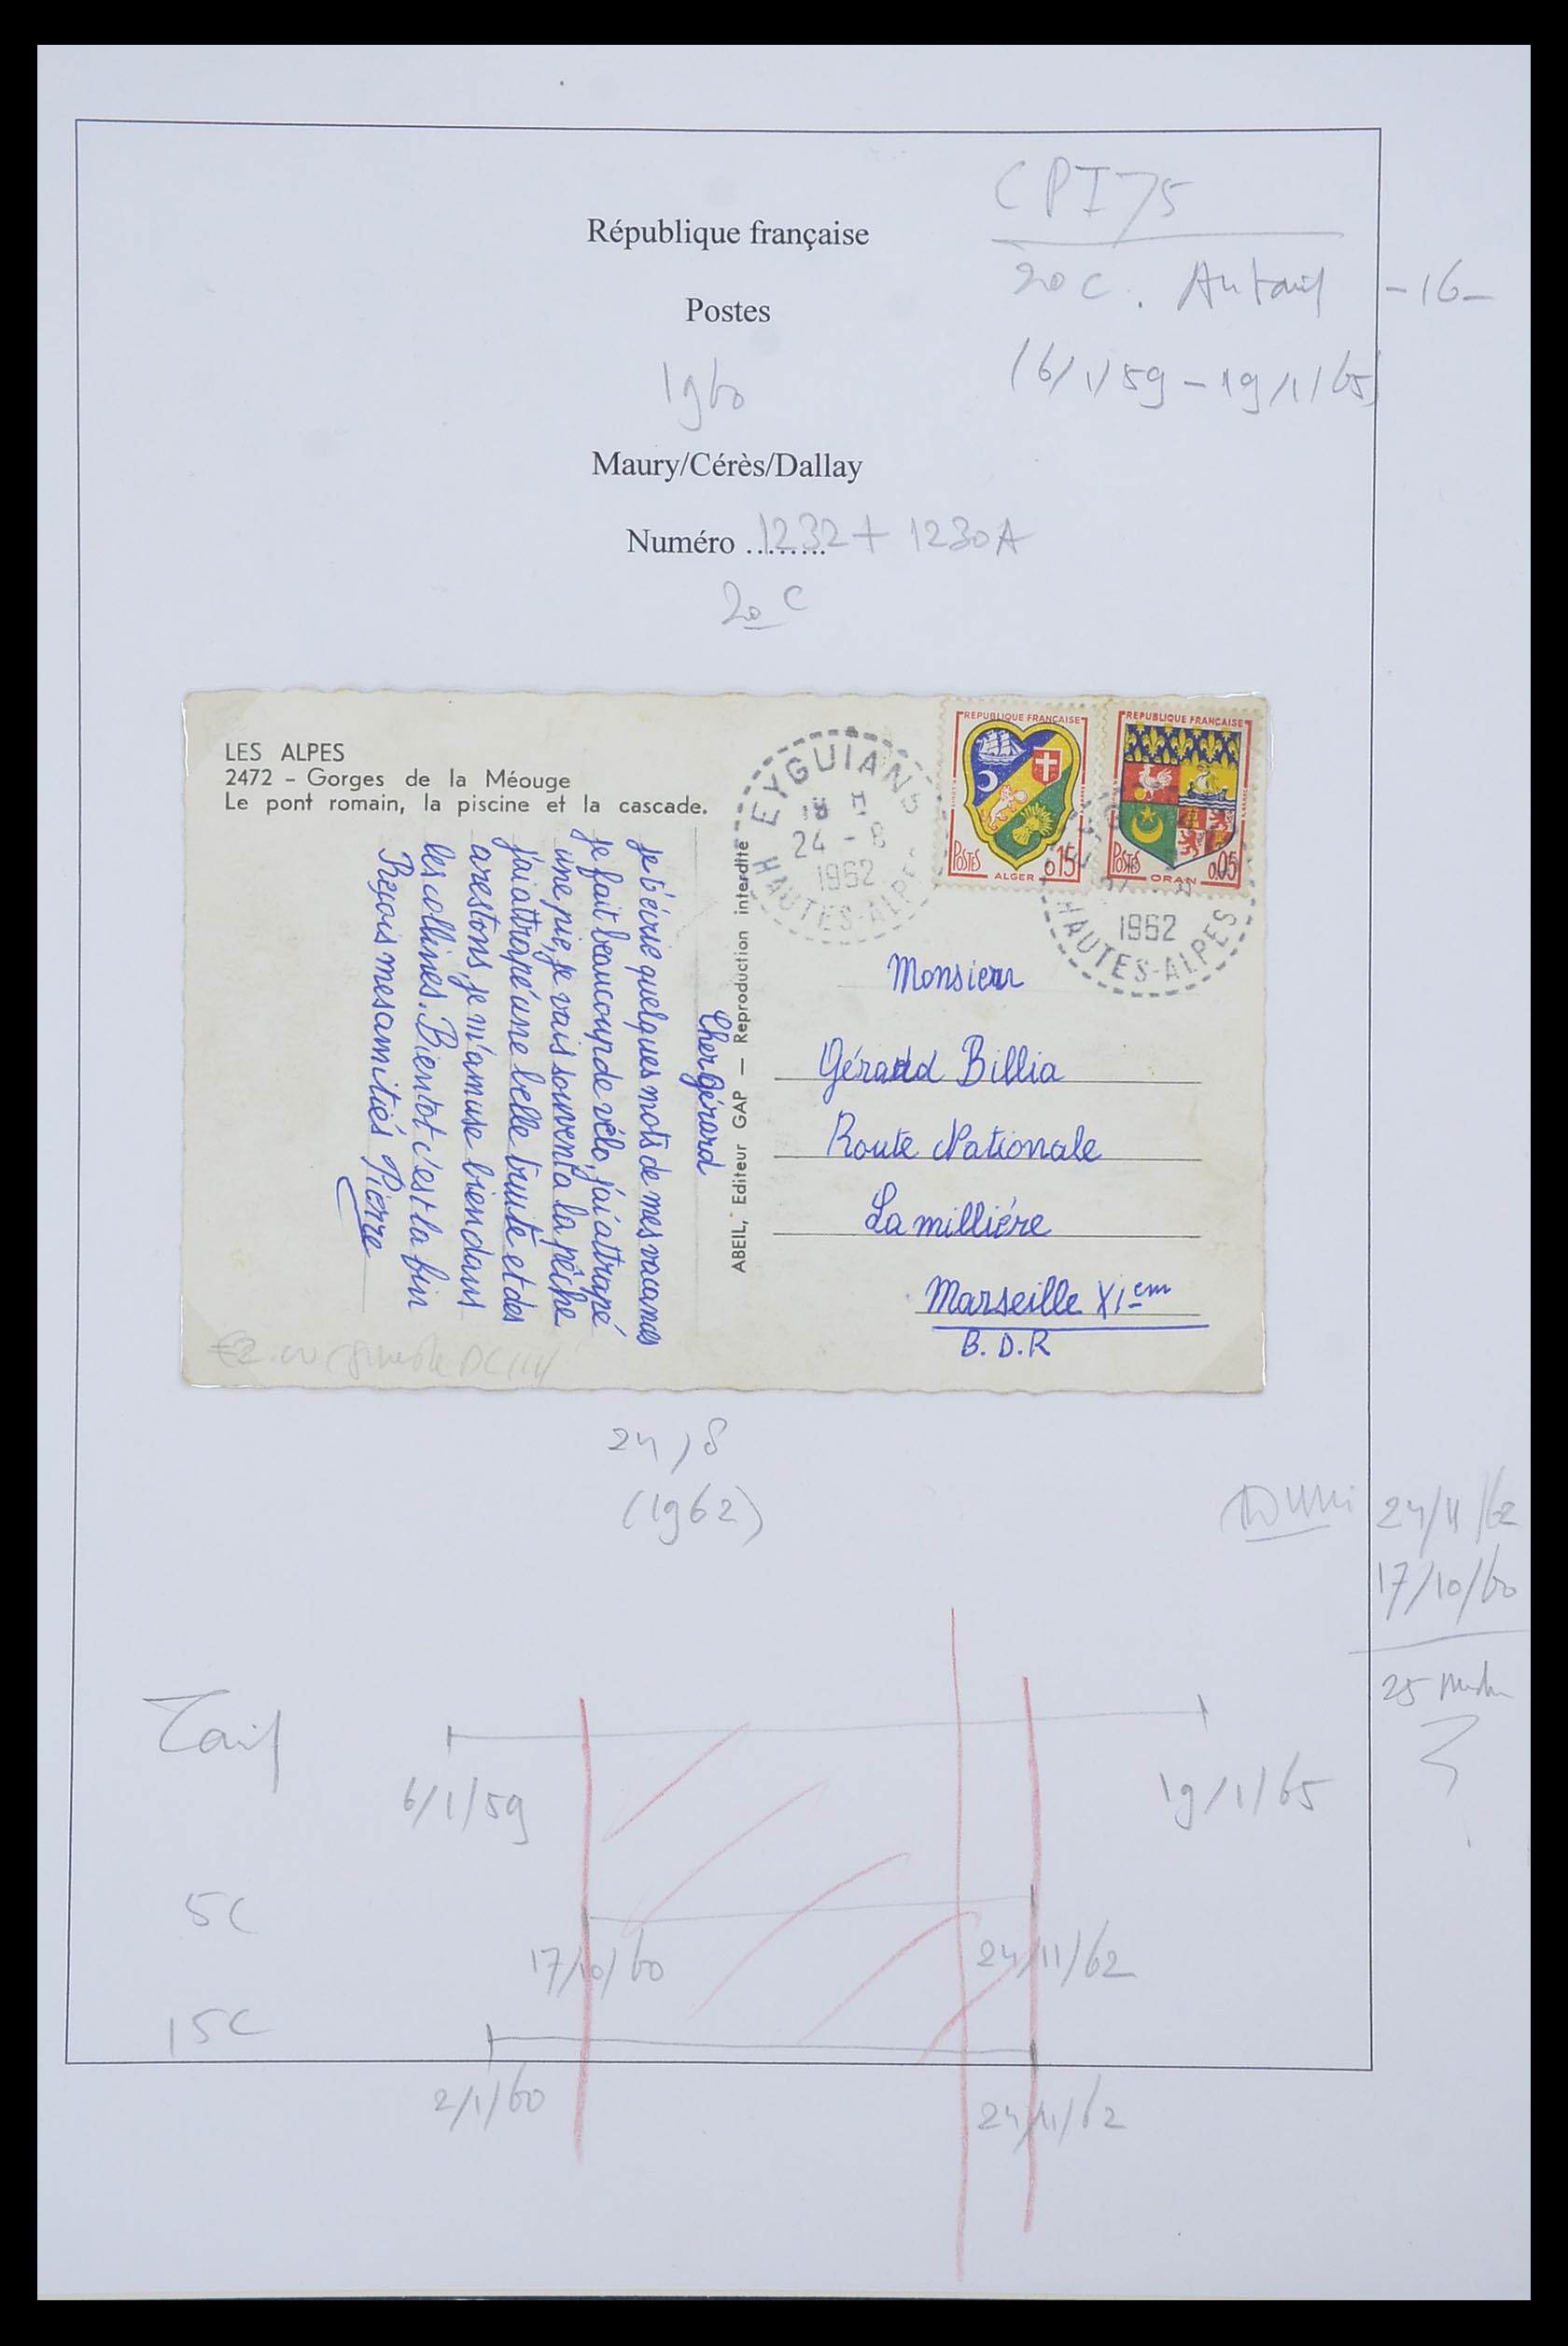 CPI75
République française
20 C. Au tarif - 16 -
Postes
(6/1/59 - 19/1/65)
1960
Maury/Cérès/Dallay
Numéro ........ 1232 + 1230A
20 C
LES ALPES
2472 - Gorges de la Méouge
Le pont romain, la piscine et la cascade.
Cher Gérard
Je t'écrie quelques mots de mes vacances
Je fait beaucoup de vélo, j'ai attrapé
une pie, je vais souvent a la pêche
j'ai attrapé une belle truite et des
arestons, je m'amuse bien dans
les collines. Bientot c'est la fin
Reçois mes amitiés Pierre
ABEIL, Editeur GAP — Reproduction interdite
EYGUIANS
18 H
24 - 8
1962
HAUTES-ALPES
REPUBLIQUE FRANÇAISE
POSTES
ALGER 0,15
REPUBLIQUE FRANÇAISE
POSTES
ORAN 0,05
1962
HAUTES-ALPES
Monsieur
Gérard Billia
Route Nationale
La milliére
Marseille XI em
B. D. R
24/8
(1962)
24/11/62
17/10/60
25
Tarif
6/1/59
19/1/65
5C
17/10/60
24/11/62
15C
2/1/60
24/11/62